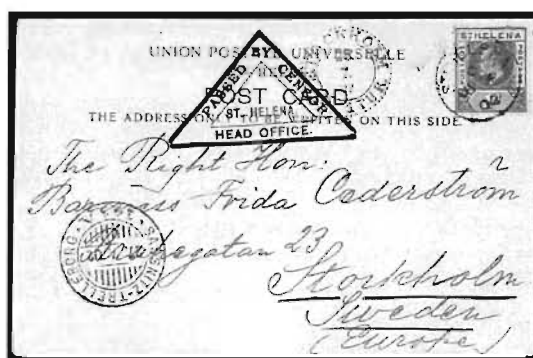 UNION POSTALE UNIVERSELLE
POST CARD
THE ADDRESS ONLY TO BE WRITTEN ON THIS SIDE
PASSED BY CENSOR
ST. HELENA
HEAD OFFICE.
ST HELENA
02
The Right Hon:
Baroness Frida Cederström
23
Stockholm
Sweden
(Europe)
SASSNITZ-TRELLEBORG